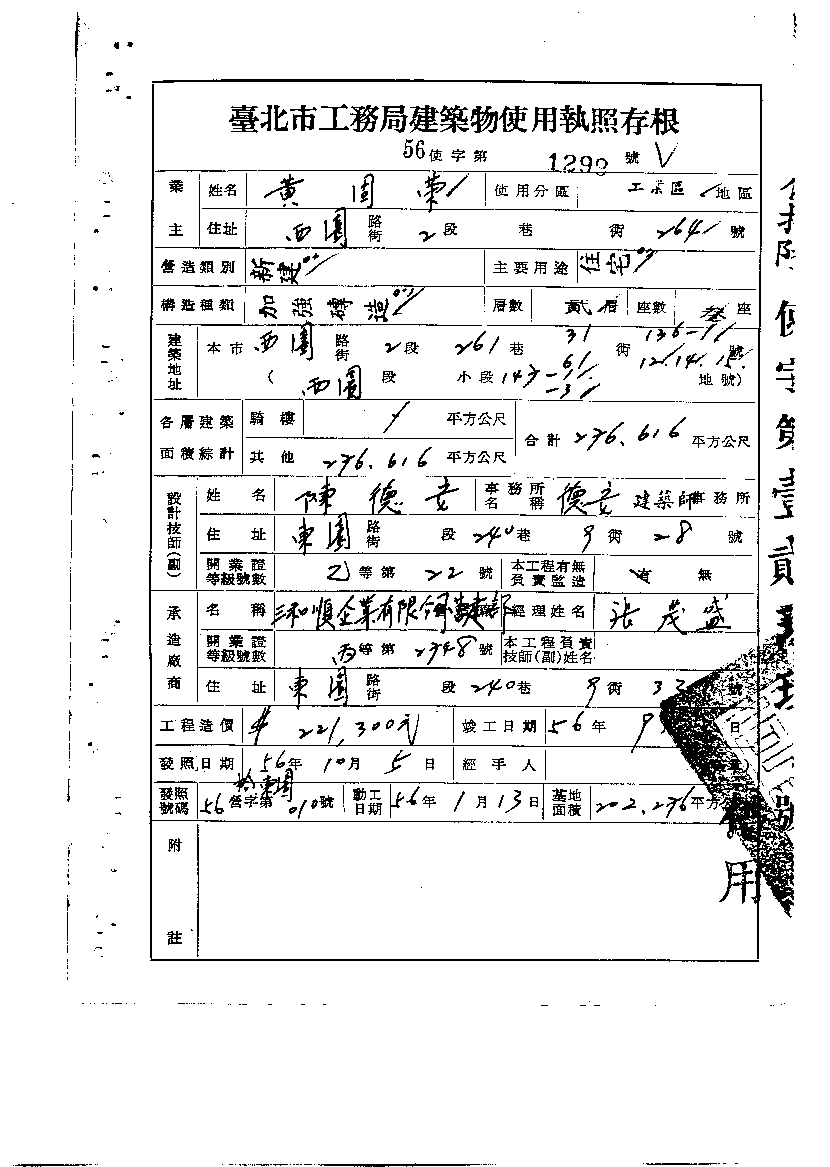 臺北市工務局建築物使用執照存根
56使字第 1299 號
業主 姓名 黃固榮 使用分區 工業區 地區
住址 西園 路街 2段 巷 街 264 號
營造類別 新建 主要用途 住宅
構造種類 加強磚造 層數 貳層 座數 座
建築地址 本市 西園 路街 2段 261巷 31 街 136-1 12.14.15 號
( 西園 段 小段 143-11 -61 -31 地號)
各層建築面積綜計 騎樓 平方公尺 合計 276.616 平方公尺
其他 276.616 平方公尺
設計技師(副) 姓名 陳德 事務所名稱 德 建築師事務所
住址 東園 路街 段 240巷 9街 28號
開業證等級號數 乙等第 22 號 本工程有無負責監造 有 無
承造廠商 名稱 三和順企業有限公司 經理姓名 張茂盛
開業證等級號數 丙等第 2748 號 本工程負責技師(副)姓名
住址 東園 路街 段 240巷 9街 33 號
工程造價 $ 221,300元 竣工日期 56年 9 日
發照日期 56年 10月 5日 經手人
發照號碼 56營字第 010號 動工日期 56年 1月 13日 基地面積 202.276平方公
附註
使字第壹貳
號
用